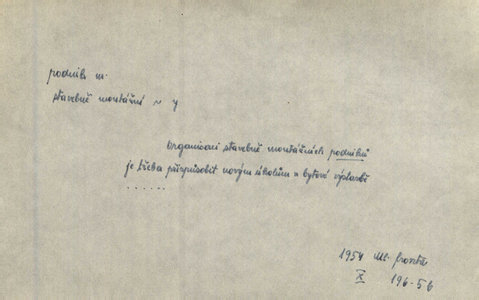 podnik m.
stavebně montážní ~ y
Organisaci stavebně montážních podniků
je třeba přizpůsobit novým úkolům v bytové výstavbě
......
1954 Ml. fronta
X 196-5b